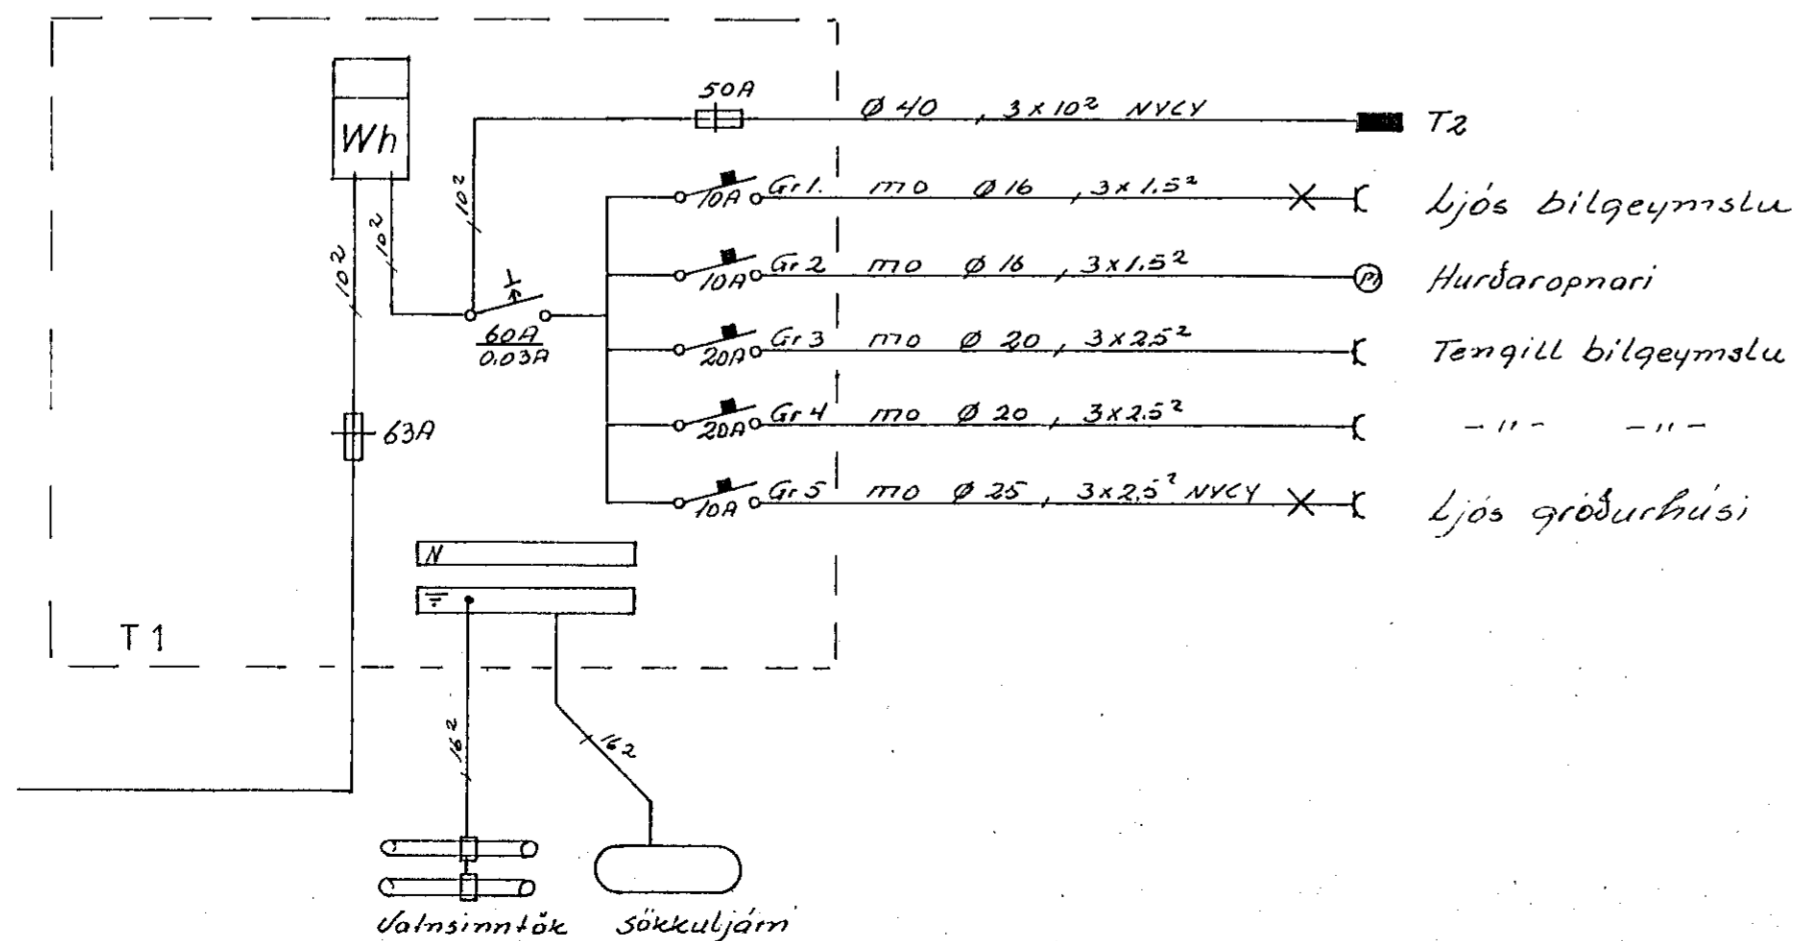 50A
Ø 40 , 3 x 10² NYCY T2
Wh
10²
10A Gr 1. mo Ø 16 , 3 x 1.5² Ljós bílgeymslu
10²
10²
10A Gr 2 mo Ø 16 , 3 x 1.5² M Hurðaropnari
60A
0.03A
20A Gr 3 mo Ø 20 , 3 x 2.5² Tengill bílgeymslu
20A Gr 4 mo Ø 20 , 3 x 2.5² - " - - " -
63A
10A Gr 5 mo Ø 25 , 3 x 2,5² NYCY Ljós gróðurhúsi
N
T 1
16²
16²
Vatnsinntök Sökkuljárn